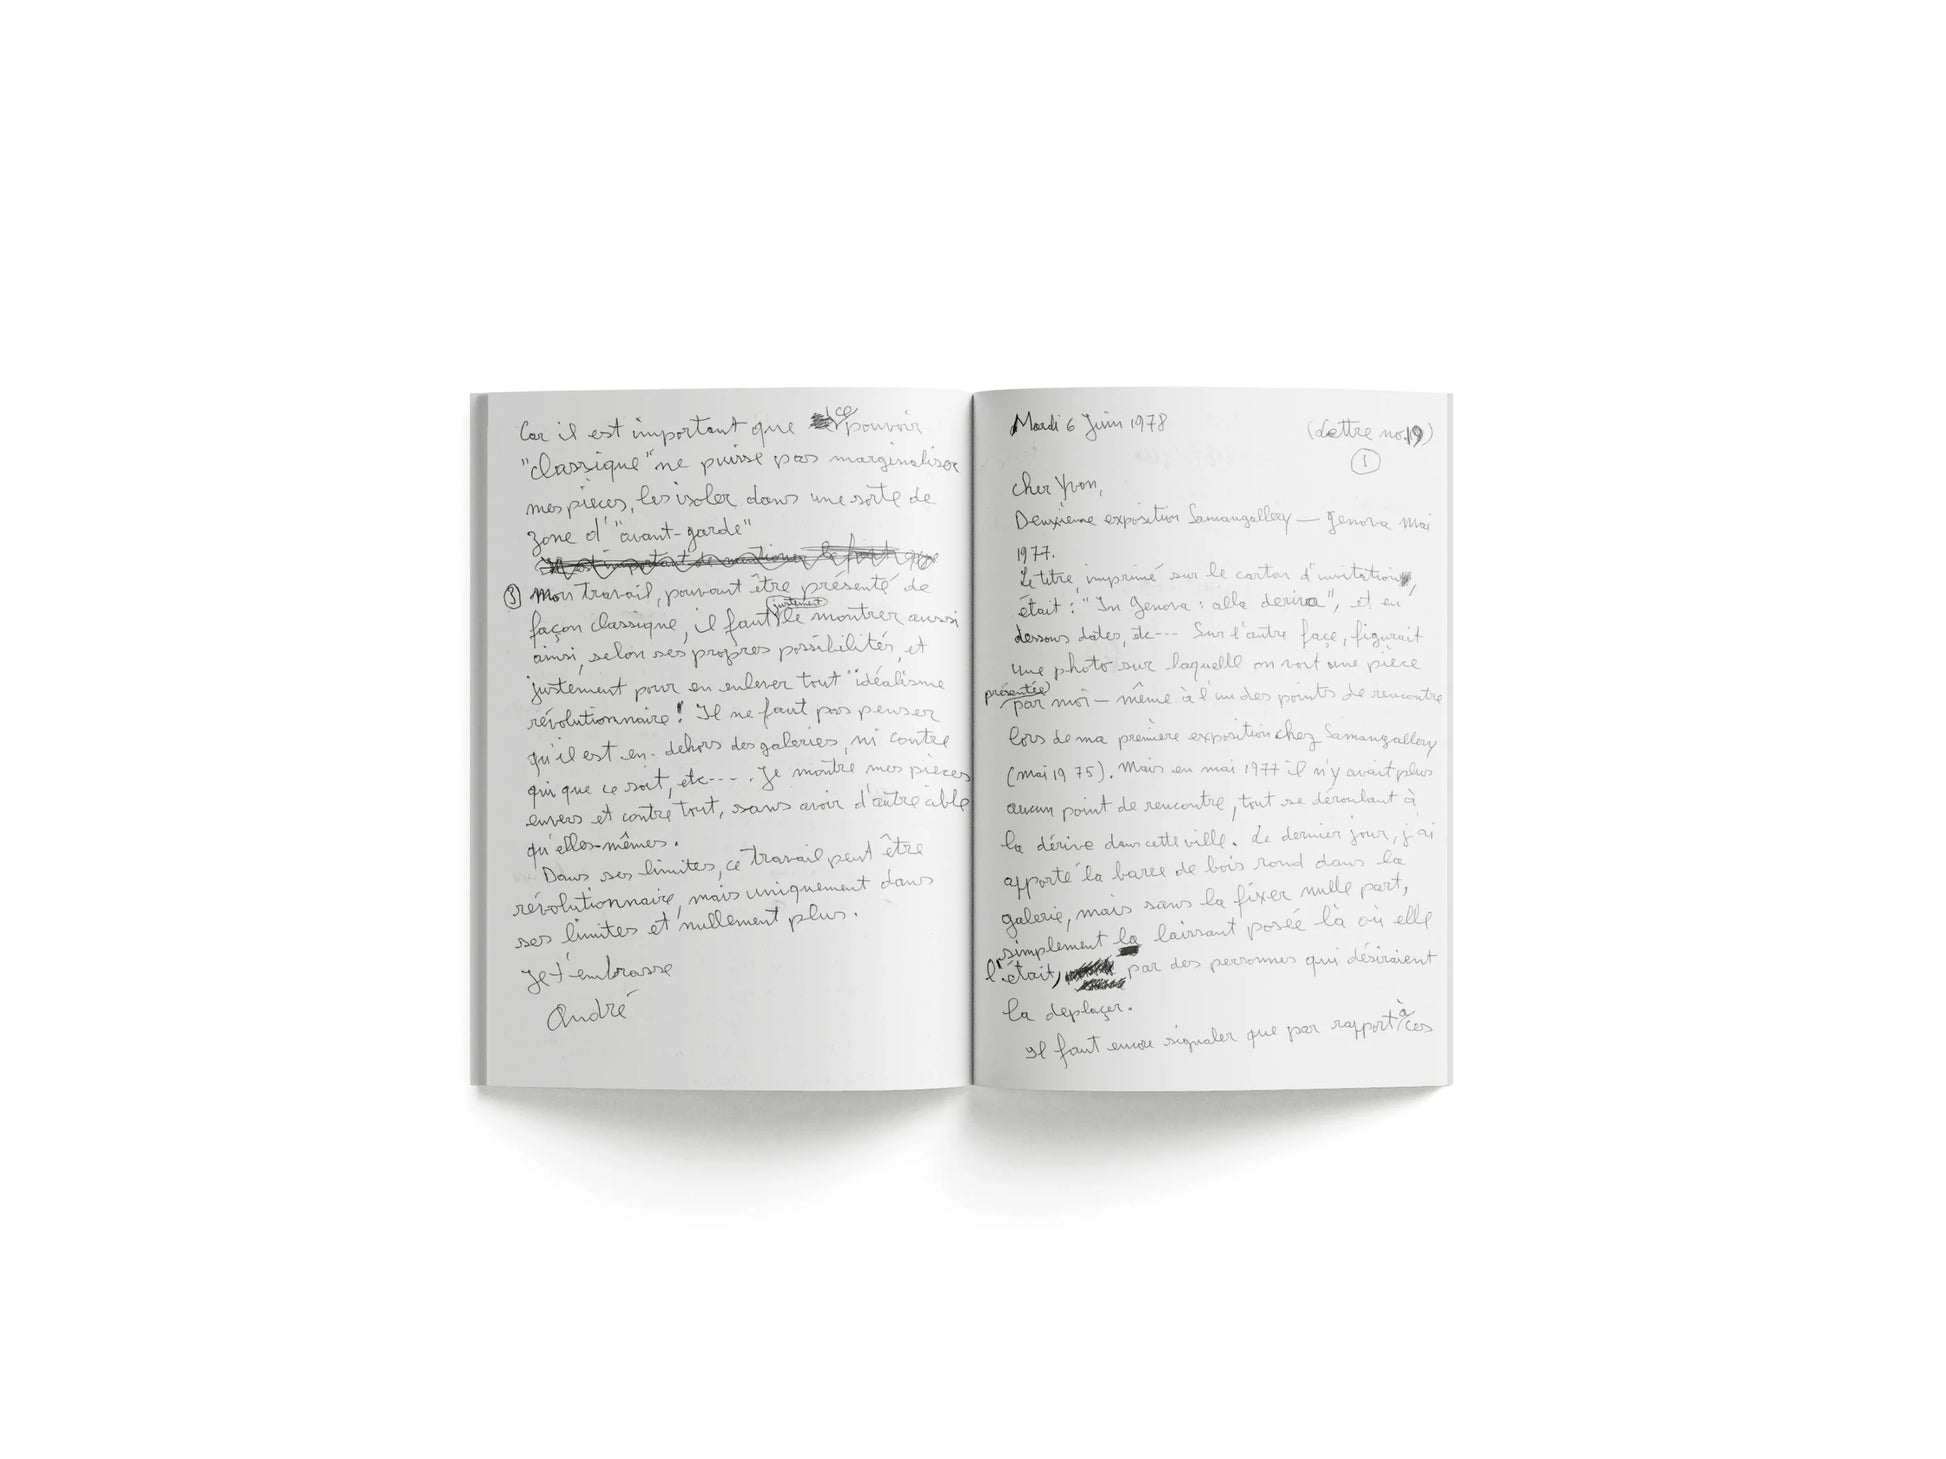 Car il est important que ce pouvoir
"classique" ne puisse pas marginaliser
mes pièces, les isoler dans une sorte de
zone d'"avant-garde"
Il est important de mentionner le fait que
③ Mon travail, pouvant être présenté de
façon classique, il faut justement le montrer aussi
ainsi, selon ses propres possibilités, et
justement pour en enlever tout "idéalisme
révolutionnaire! Il ne faut pas penser
qu'il est en-dehors des galeries, ni contre
qui que ce soit, etc---. Je montre mes pièces
envers et contre tout, sans avoir d'autre cible
qu'elles-mêmes.
Dans ses limites, ce travail peut être
révolutionnaire, mais uniquement dans
ses limites et nullement plus.
Je t'embrasse
André
Mardi 6 Juin 1978 (Lettre no.19)
①
Cher Yvon,
Deuxième exposition Samangallery — Genova Mai
1977.
Le titre, imprimé sur le carton d'invitation,
était : "In Genova : alla deriva", et en
dessous dates, etc--- Sur l'autre façe, figurait
une photo sur laquelle on voit une pièce
présentée par moi-même à l'un des points de rencontre
lors de ma première exposition chez Samangallery
(mai 1975). Mais en mai 1977 il n'y avait plus
aucun point de rencontre, tout se déroulant à
la dérive dans cette ville. Le dernier jour, j'ai
apporté la barre de bois rond dans la
galerie, mais sans la fixer nulle part,
simplement la laissant posée là où elle
l'était, par des personnes qui désiraient
la deplaçer.
Il faut encore signaler que par rapport à ces